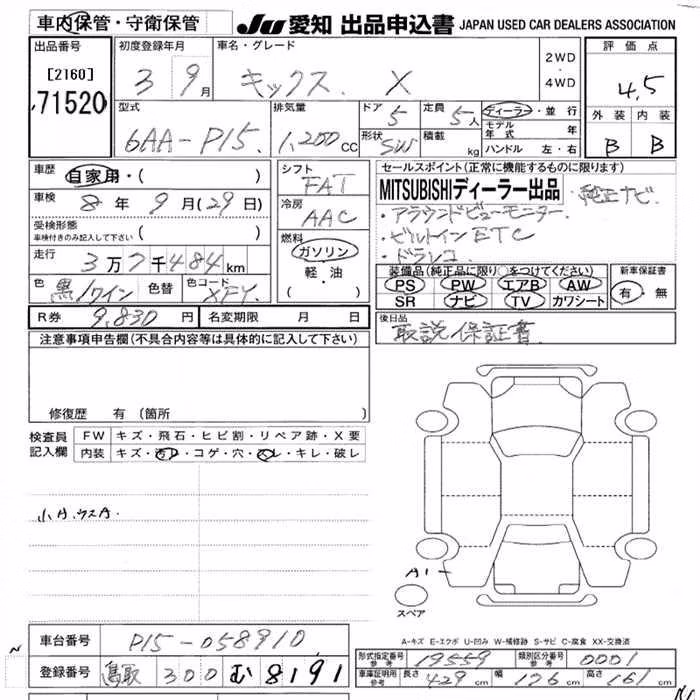 車内保管・守衛保管
JU 愛知 出品申込書 JAPAN USED CAR DEALERS ASSOCIATION
出品番号 初度登録年月 車名・グレード 2WD・4WD 評価点
[2160] 71520 3 9月 キックス X 4.5
型式 排気量 ドア 定員 ディーラー・並行 外装 内装
6AA-P15 1,200cc 5 5人 モデル年式 年 B B
形状 SW 積載 kg ハンドル 左・右
車歴 自家用・( ) シフト FAT セールスポイント(正常に機能するものに限ります)
車検 8年9月(29日) 冷房 AAC MITSUBISHIディーラー出品 ・純正ナビ
・アラウンドビューモニター
受検形態 車検付きのみ記入して下さい ( ) 燃料 ・ビルトインETC
走行 3万7千484km ガソリン ・ドラレコ
軽・油
( )
色 黒/ワイン 色替 色コード XFY 装備品(純正品に限り○をつけてください) 新車保証書
PS PW エアB AW 有・無
SR ナビ TV カワシート
R券 9,830円 名変期限 月 日 後日品
取説 保証書
注意事項申告欄(不具合内容等は具体的に記入して下さい)
修復歴 有(箇所
検査員記入欄 FW キズ・飛石・ヒビ割・リペア跡・X要
内装 キズ・汚レ・コゲ・穴・スレ・キレ・破レ
小A.ウスA.
A1
スペア
A-キズ E-エクボ U-凹み W-補修跡 S-サビ C-腐食 XX-交換済
車台番号 P15-058910
形式指定番号 参考 19559 類別区分番号 参考 0001
登録番号 鳥取 300 む 8191
車庫証明用 参考 長さ 429cm 幅 176cm 高さ 161cm